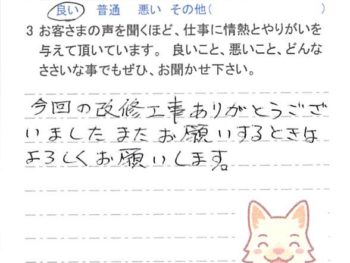 良い 普通 悪い その他( )
3 お客さまの声を聞くほど、仕事に情熱とやりがいを
与えて頂いています。良いこと、悪いこと、どんな
ささいな事でもぜひ、お聞かせ下さい。
今回の改修工事ありがとうござ
いました またお願いするときは
よろしくお願いします。